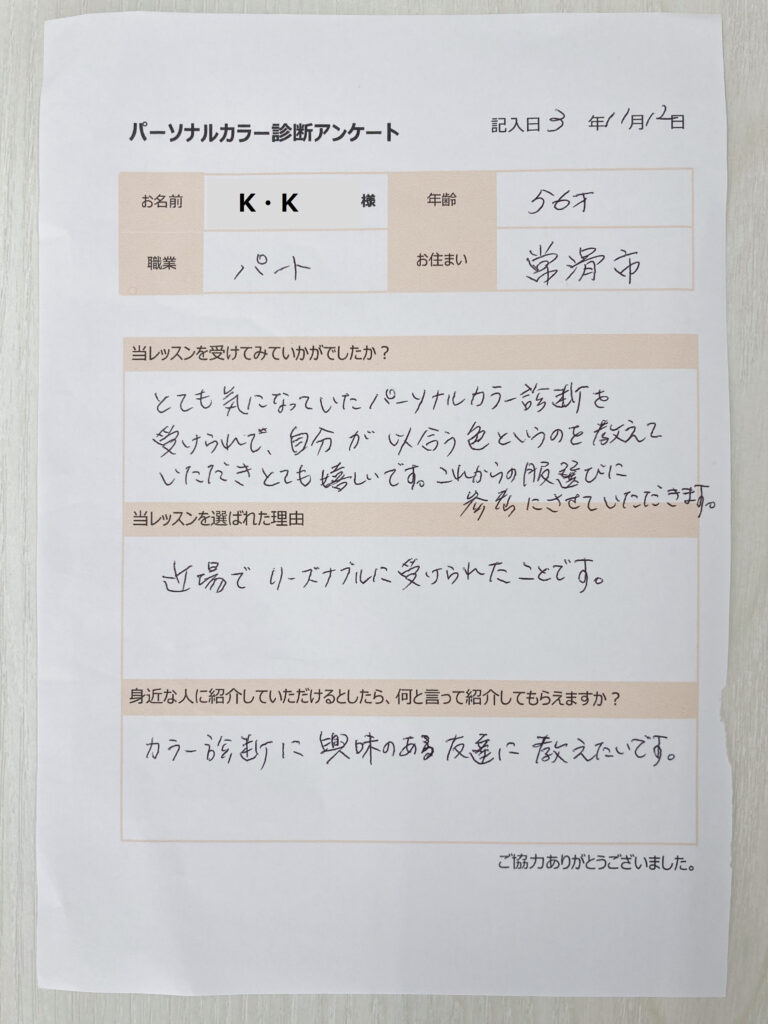 パーソナルカラー診断アンケート 記入日 3 年 11月12日
お名前 K・K 様 年齢 56才
職業 パート お住まい 常滑市
当レッスンを受けてみていかがでしたか？
とても気になっていたパーソナルカラー診断を
受けられて、自分が以合う色というのを教えて
いただきとても嬉しいです。これからの服選びに
参考にさせていただきます。
当レッスンを選ばれた理由
近場でリーズナブルに受けられたことです。
身近な人に紹介していただけるとしたら、何と言って紹介してもらえますか？
カラー診断に興味のある友達に教えたいです。
ご協力ありがとうございました。